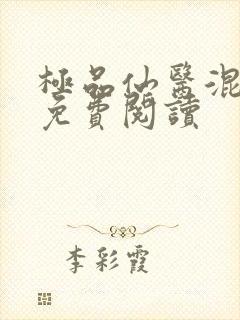 極品仙醫混
免費閱讀
李彩霞